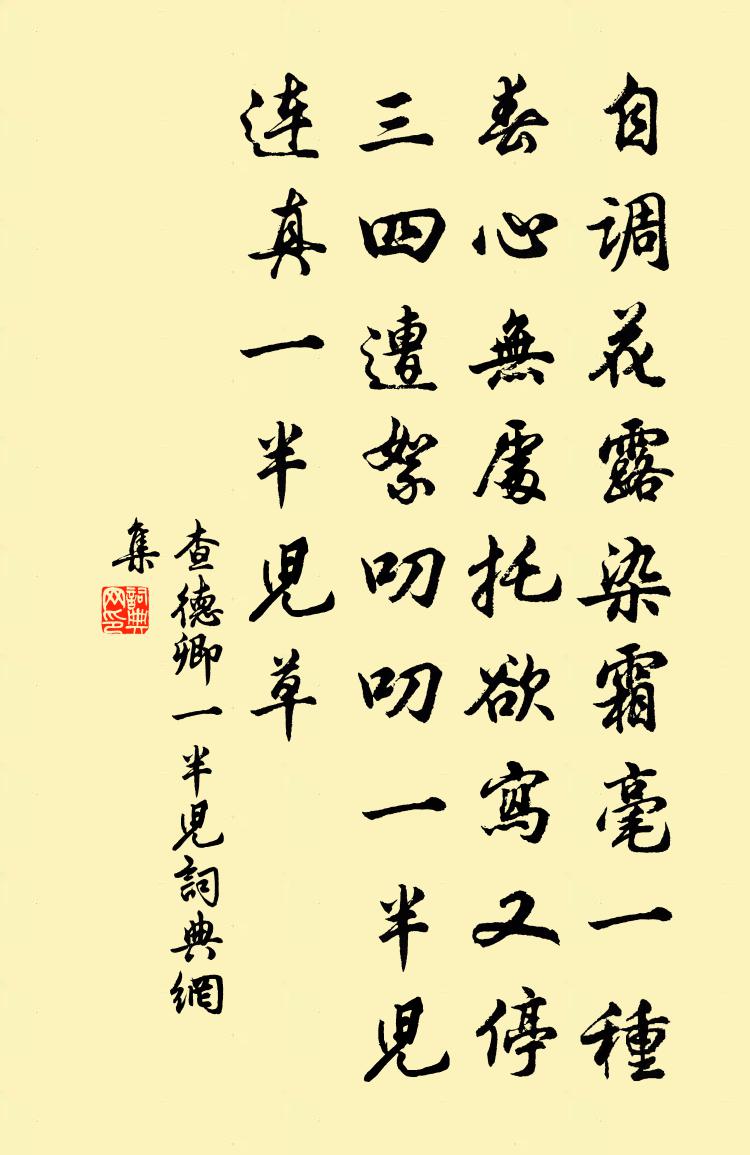 自調花露染霜毫一種
春心無處托欲寫又停
三四遭絮叨叨一半兒
連真一半兒草
查德卿一半兒詞典網
集
詞典
网印